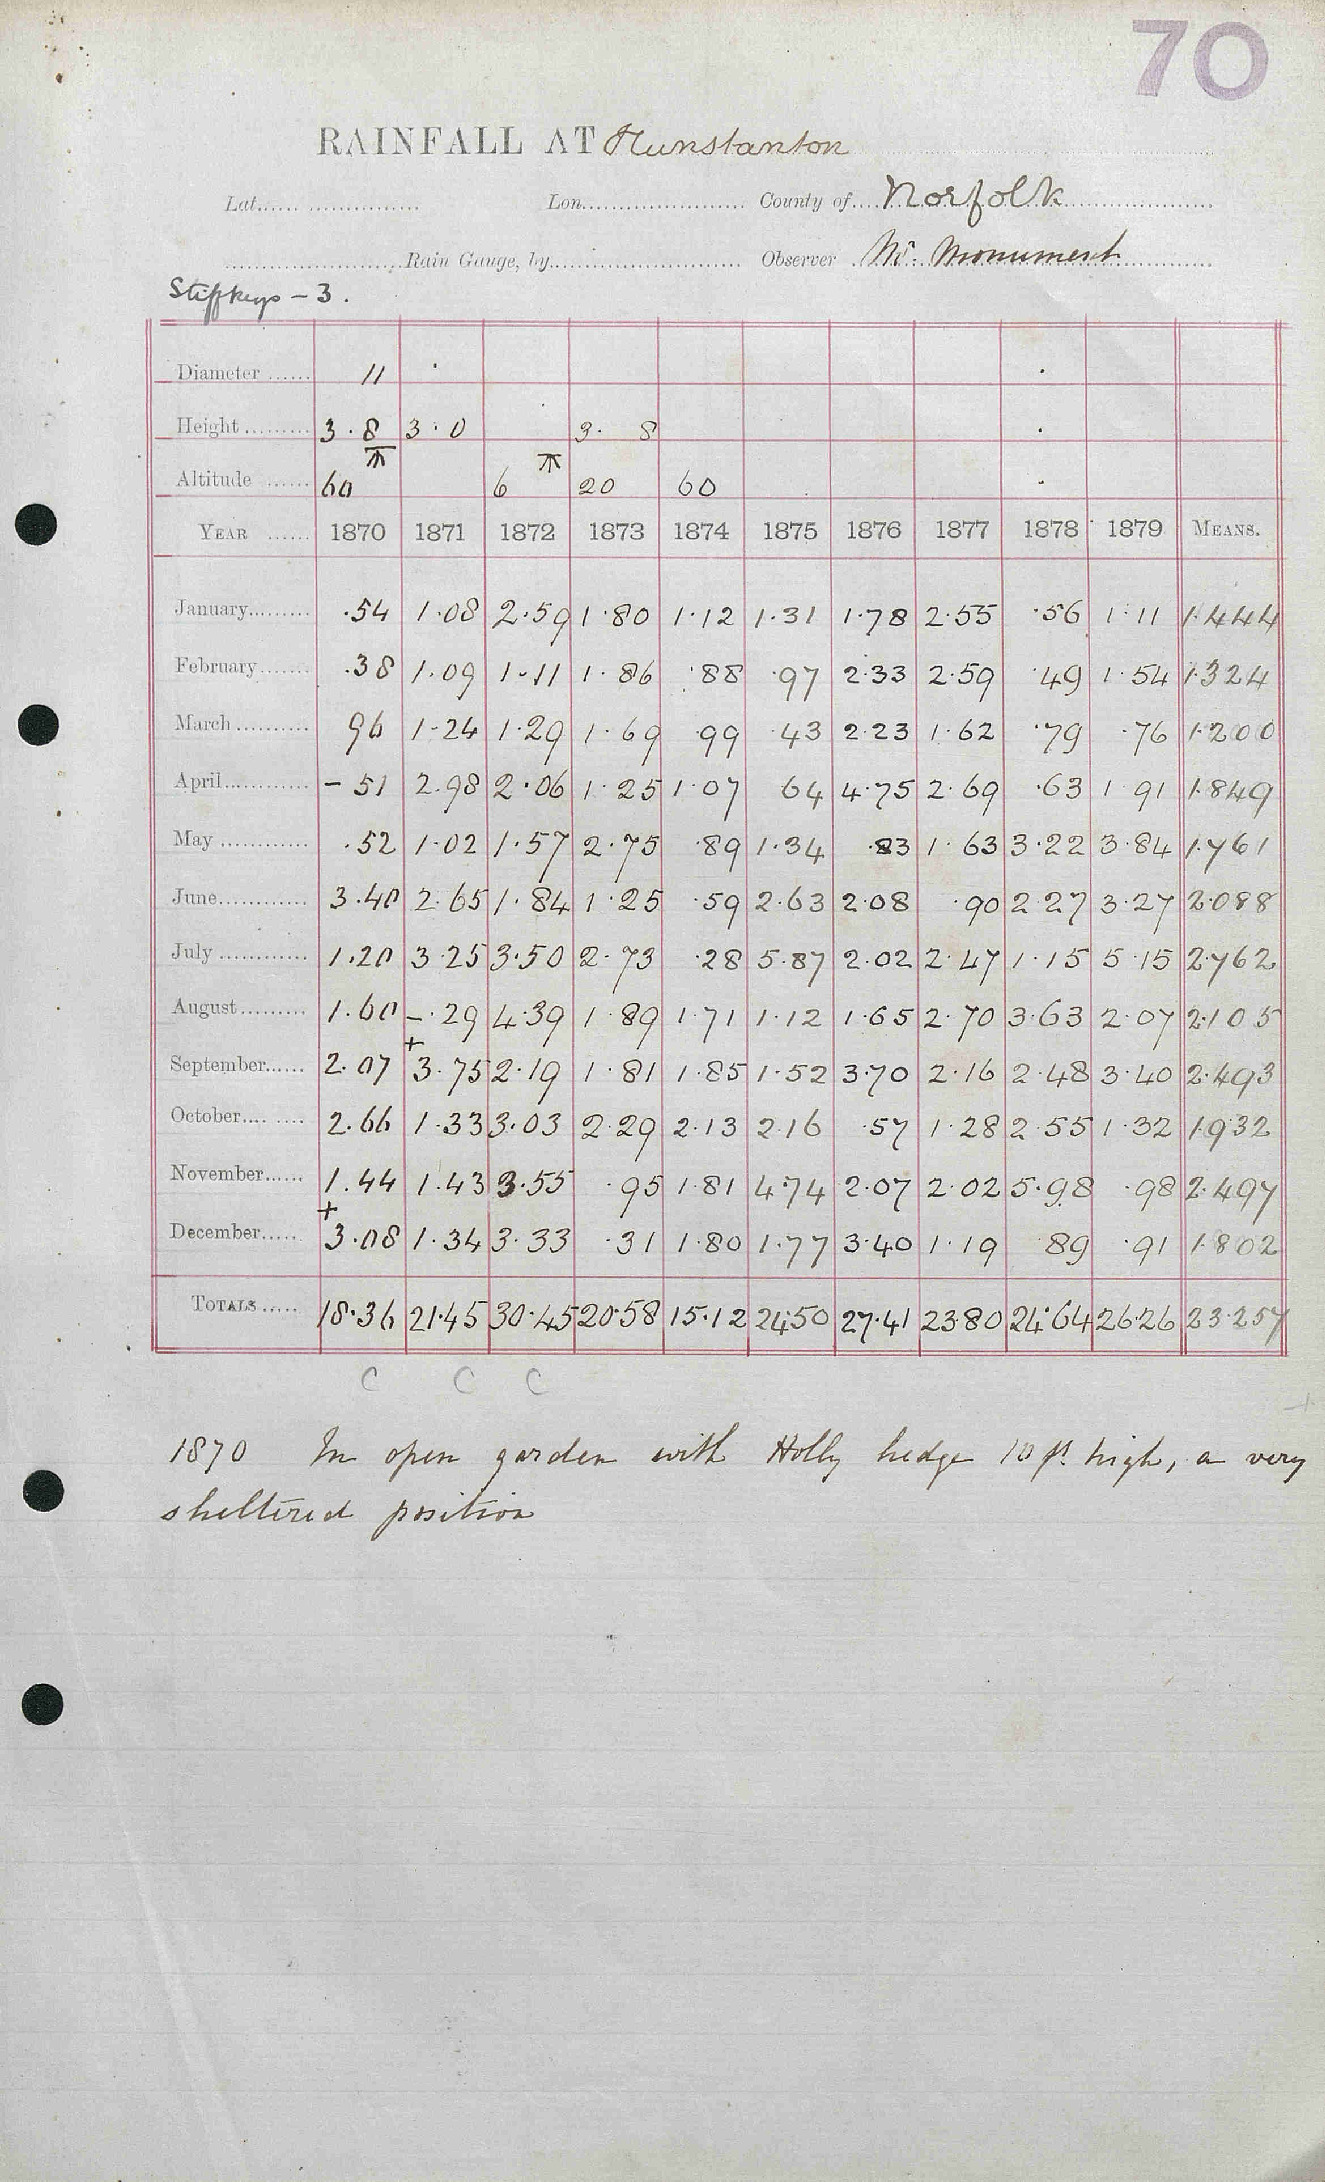 70
RAINFALL AT Hunstanton
Lat. Lon. County of Norfolk
Rain Gauge, by Observer Mr. Monument
Stiffkeys - 3.
Diameter 11
Height 3.8 3.0 3. 8
Altitude 60 6 20 60
YEAR 1870 1871 1872 1873 1874 1875 1876 1877 1878 1879 MEANS.
January .54 1.08 2.59 1.80 1.12 1.31 1.78 2.55 .56 1.11 1.444
February .38 1.09 1.11 1.86 .88 .97 2.33 2.59 .49 1.54 1.324
March 96 1.24 1.29 1.69 .99 .43 2.23 1.62 .79 .76 1.200
April - 51 2.98 2.06 1.25 1.07 64 4.75 2.69 .63 1 91 1.849
May .52 1.02 1.57 2.75 .89 1.34 .83 1.63 3.22 3.84 1.761
June 3.40 2.65 1.84 1.25 .59 2.63 2.08 .90 2 27 3.27 2.088
July 1.20 3.25 3.50 2.73 .28 5.87 2.02 2.47 1.15 5.15 2.762
August 1.60 -.29 4.39 1.89 1.71 1.12 1.65 2.70 3.63 2.07 2.105
September 2.07 + 3.75 2.19 1.81 1.85 1.52 3.70 2.16 2.48 3.40 2.493
October 2.66 1.33 3.03 2.29 2.13 2.16 .57 1.28 2.55 1.32 1.932
November 1.44 1.43 3.55 .95 1.81 4.74 2.07 2.02 5.98 .98 2.497
December + 3.08 1.34 3.33 .31 1.80 1.77 3.40 1.19 89 .91 1.802
TOTALS 18.36 21.45 30.45 20.58 15.12 24.50 27.41 23.80 24.64 26.26 23.257
C C C
1870 In open garden with Holly hedge 10 ft. high, a very
sheltered position